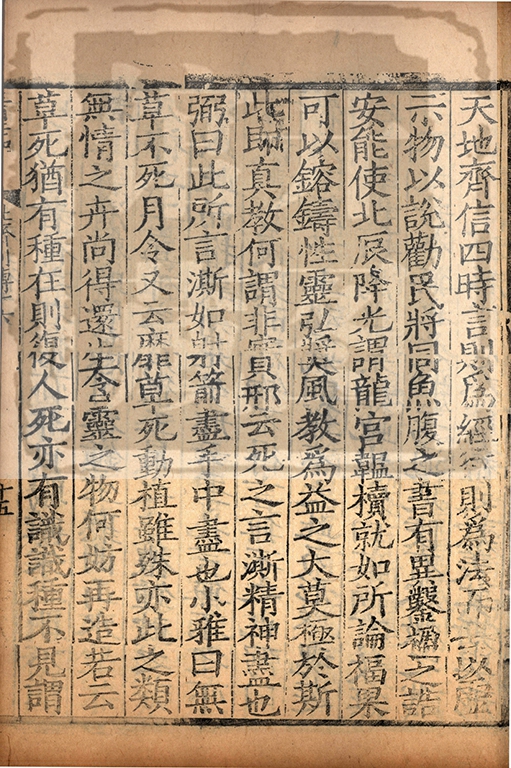 天地齊信四時言則爲經行則爲法而云以虛
示物以說勸民將同魚腹之書有異鑿楹之誥
安能使北辰降光謂龍宮韞櫝就如所論福果
可以鎔鑄性靈弘奬風教爲益之大莫極於斯
此即真教何謂非實邢云死之言澌精神盡也
弼曰此所言澌如射箭盡手中盡也小雅曰無
草不死月令又云靡草死動植雖殊亦此之類
無情之卉尚得還生含靈之物何妨再造若云
草死猶有種在則復人死亦有識識種不見謂
十五